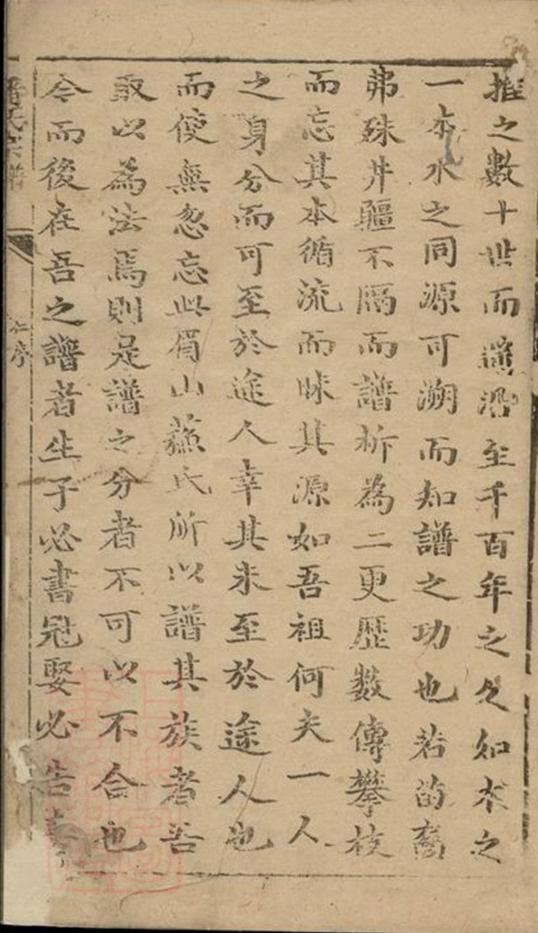 推之數十世而遞沿至千百年之久如木之
一本水之同源可溯而知譜之功也若的裔
弗殊井疆不隔而譜析為二更歷數傳攀枝
而忘其本循流而昧其源如吾祖何夫一人
之身分而可至於途人幸其未至於途人也
而使無忽忘此眉山蘇氏所以譜其族者吾
取以為法焉則是譜之分者不可以不合也
令而後在吾之譜者生子必書冠娶必告
氏宗譜
序